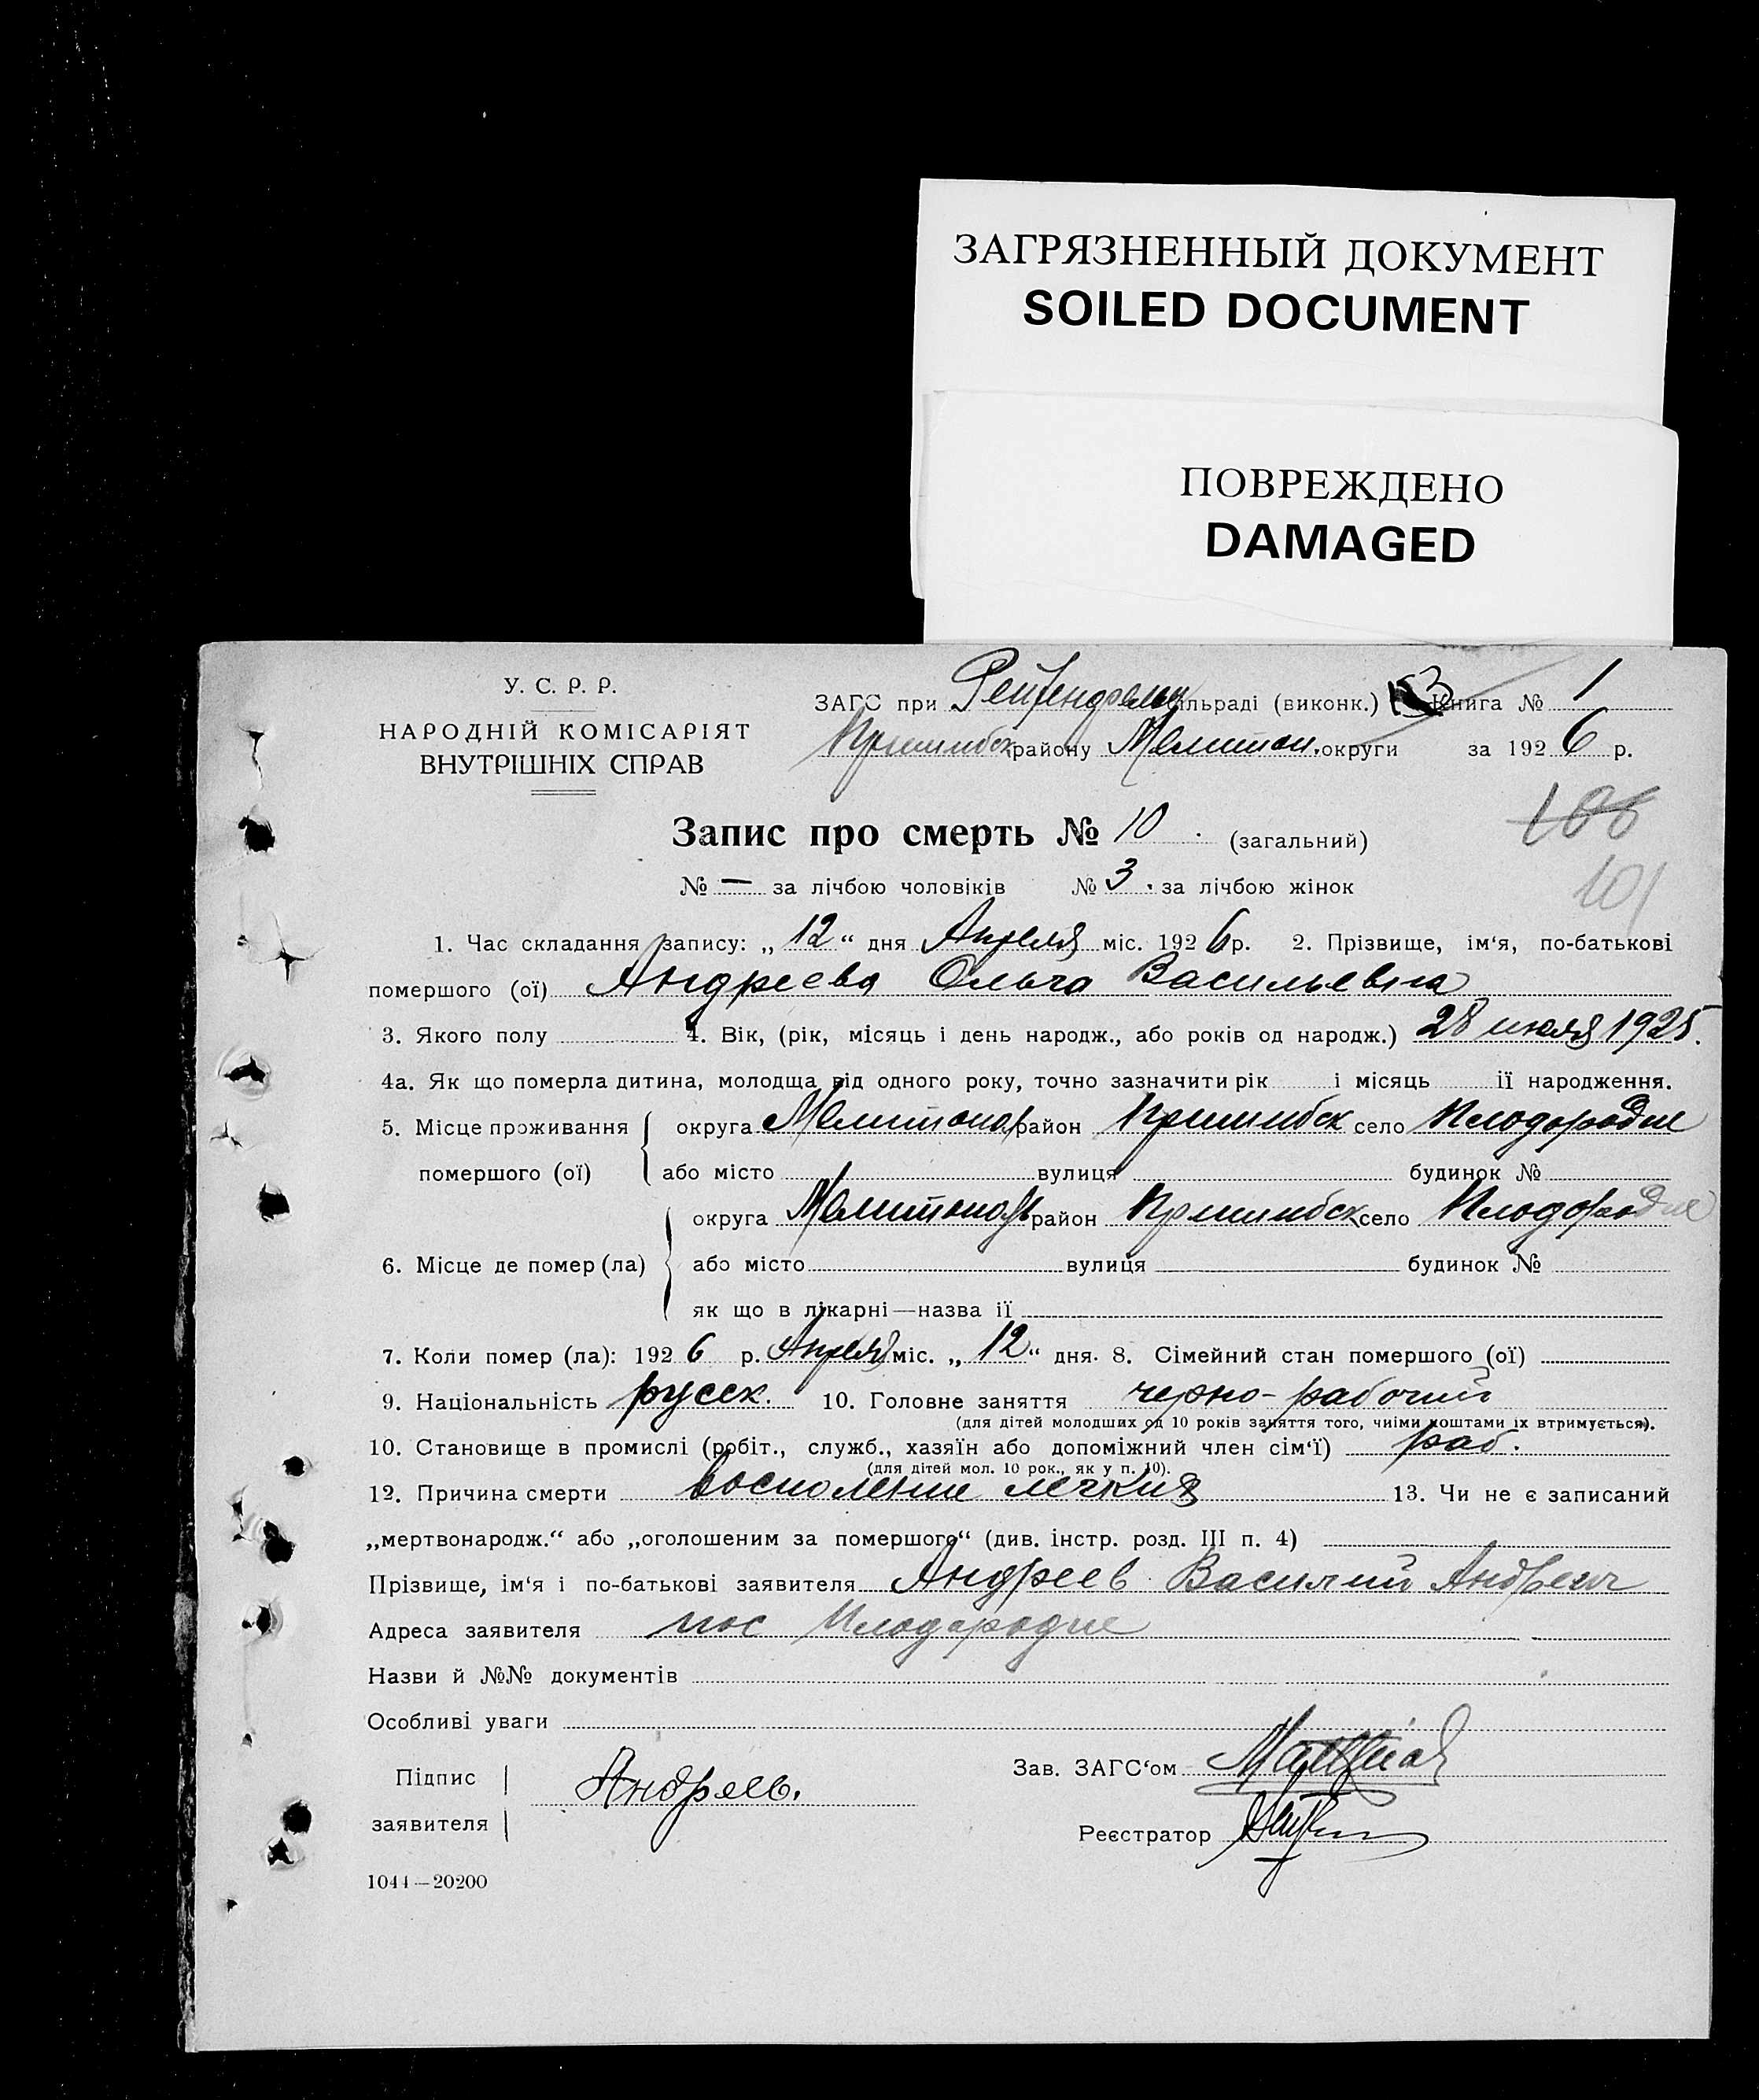 ЗАГРЯЗНЕННЫЙ ДОКУМЕНТ
SOILED DOCUMENT
ПОВРЕЖДЕНО
DAMAGED
У. С. Р. Р.
НАРОДНІЙ КОМІСАРІЯТ
ВНУТРІШНІХ СПРАВ
ЗАГС при сільраді (виконк.) Книга № 1
району Мелитоп. округи за 1926 р.
Запис про смерть № 10. (загальний)
106
№ — за лічбою чоловіків № 3. за лічбою жінок
101
1. Час складання запису: „12“ дня Апреля міс. 1926 р. 2. Прізвище, ім‘я, по-батькові
помершого (ої) Андреева Ольга Васильевна
3. Якого полу 4. Вік, (рік, місяць і день народж., або років од народж.) 28 июля 1925.
4а. Як що померла дитина, молодща від одного року, точно зазначити рік і місяць ії народження.
5. Місце проживання округа Мелитопол район Пришибск село Плодородие
помершого (ої) або місто вулиця будинок №
округа Мелитопол район Пришибск село Плодородие
6. Місце де помер (ла) або місто вулиця будинок №
як що в лікарні—назва ії
7. Коли помер (ла): 1926 р. Апреля міс. „12“ дня. 8. Сімейний стан помершого (ої)
9. Національність русск. 10. Головне заняття черно-рабочий
(для дітей молодших од 10 років заняття того, чиїми коштами їх втримується).
10. Становище в промислі (робіт., служб., хазяїн або допоміжний член сім‘ї) раб.
(для дітей мол. 10 рок., як у п. 10).
12. Причина смерти воспаление легких 13. Чи не є записаний
„мертвонародж.“ або „оголошеним за помершого“ (див. інстр. розд. III п. 4)
Прізвище, ім‘я і по-батькові заявителя Андреев Василий Андреич
Адреса заявителя пос Плодородие
Назви й №№ документів
Особливі уваги
Підпис Андреев. Зав. ЗАГС‘ом
заявителя Реєстратор
1044—20200